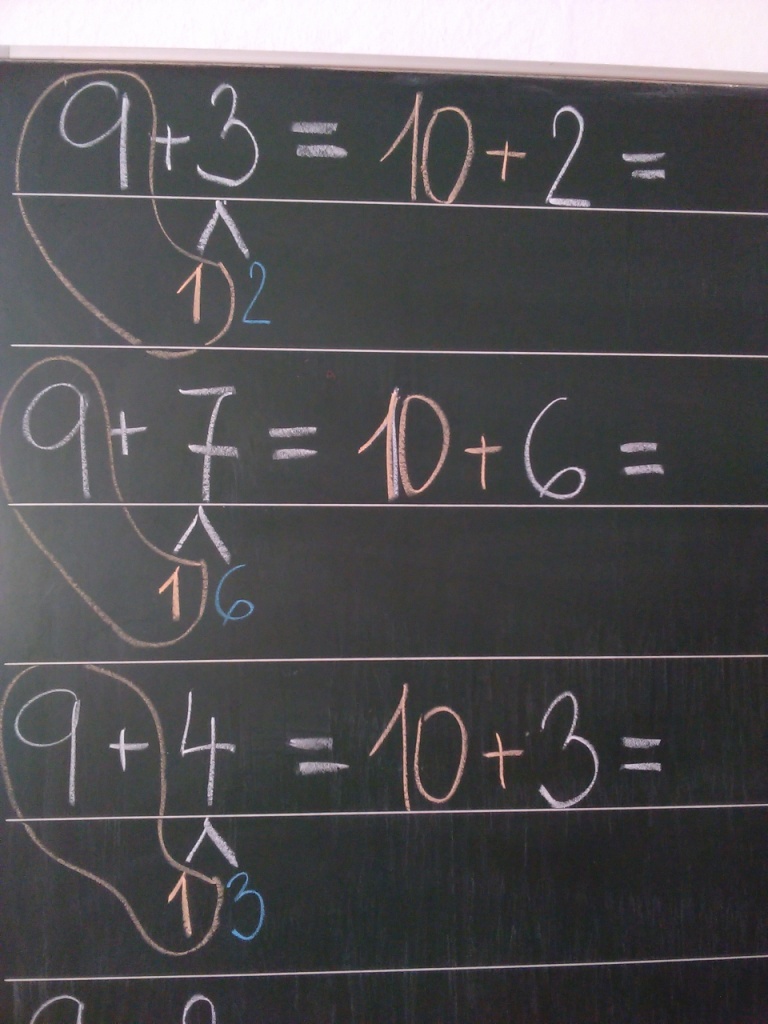 9 + 3 = 10 + 2 =
1 2
9 + 7 = 10 + 6 =
1 6
9 + 4 = 10 + 3 =
1 3